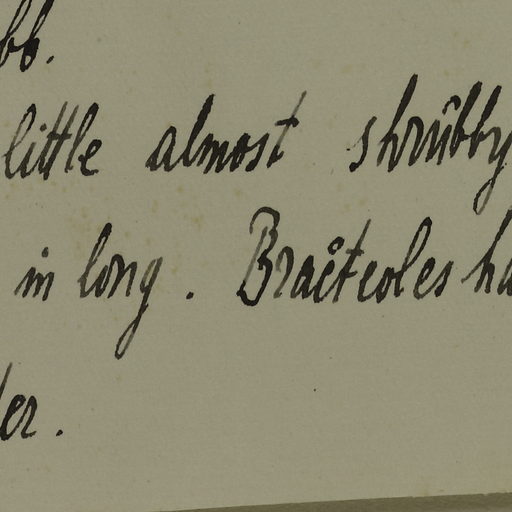 bb.
little almost shrubby
in long. Bracteoles ha
er.